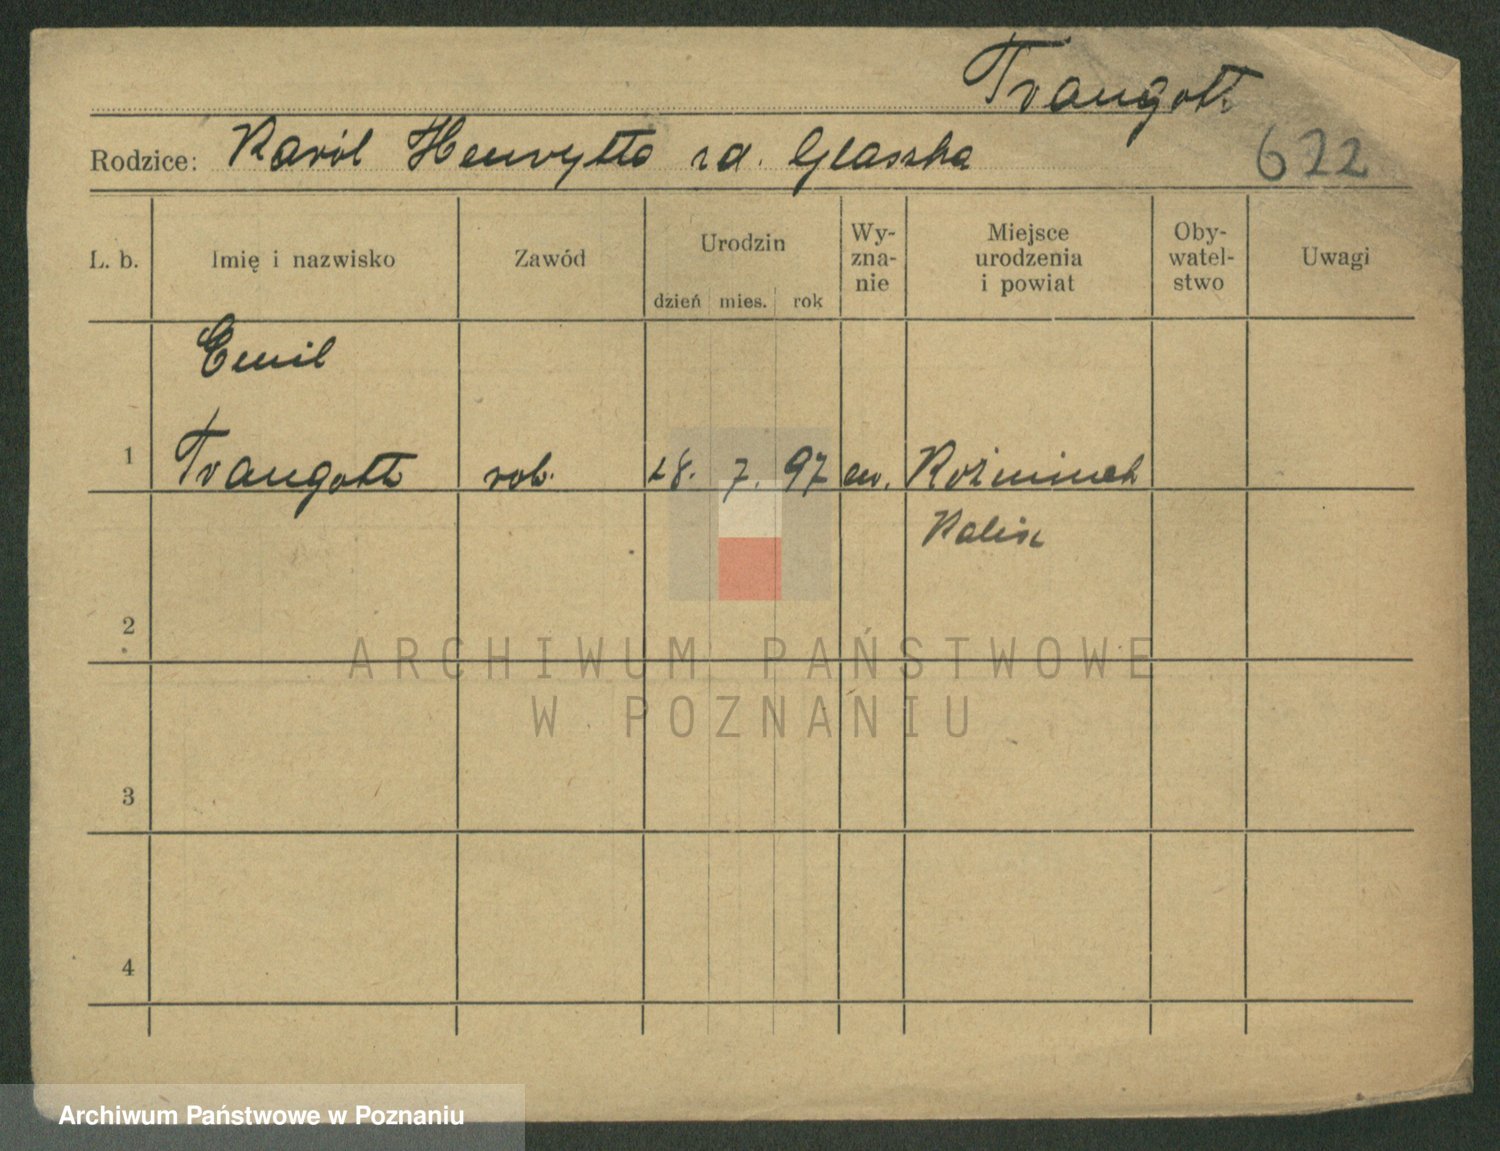 Trangott
Rodzice: Karól Henrytta z d. Glaszka 622
L. b. Imię i nazwisko Zawód Urodzin dzień mies. rok Wy-zna-nie Miejsce urodzenia i powiat Oby-watel-stwo Uwagi
Emil
1 Trangott rob. 28. 7. 97 ew. Koźminek
Kalisz
2
ARCHIWUM PAŃSTWOWE
W POZNANIU
3
4
Archiwum Państwowe w Poznaniu